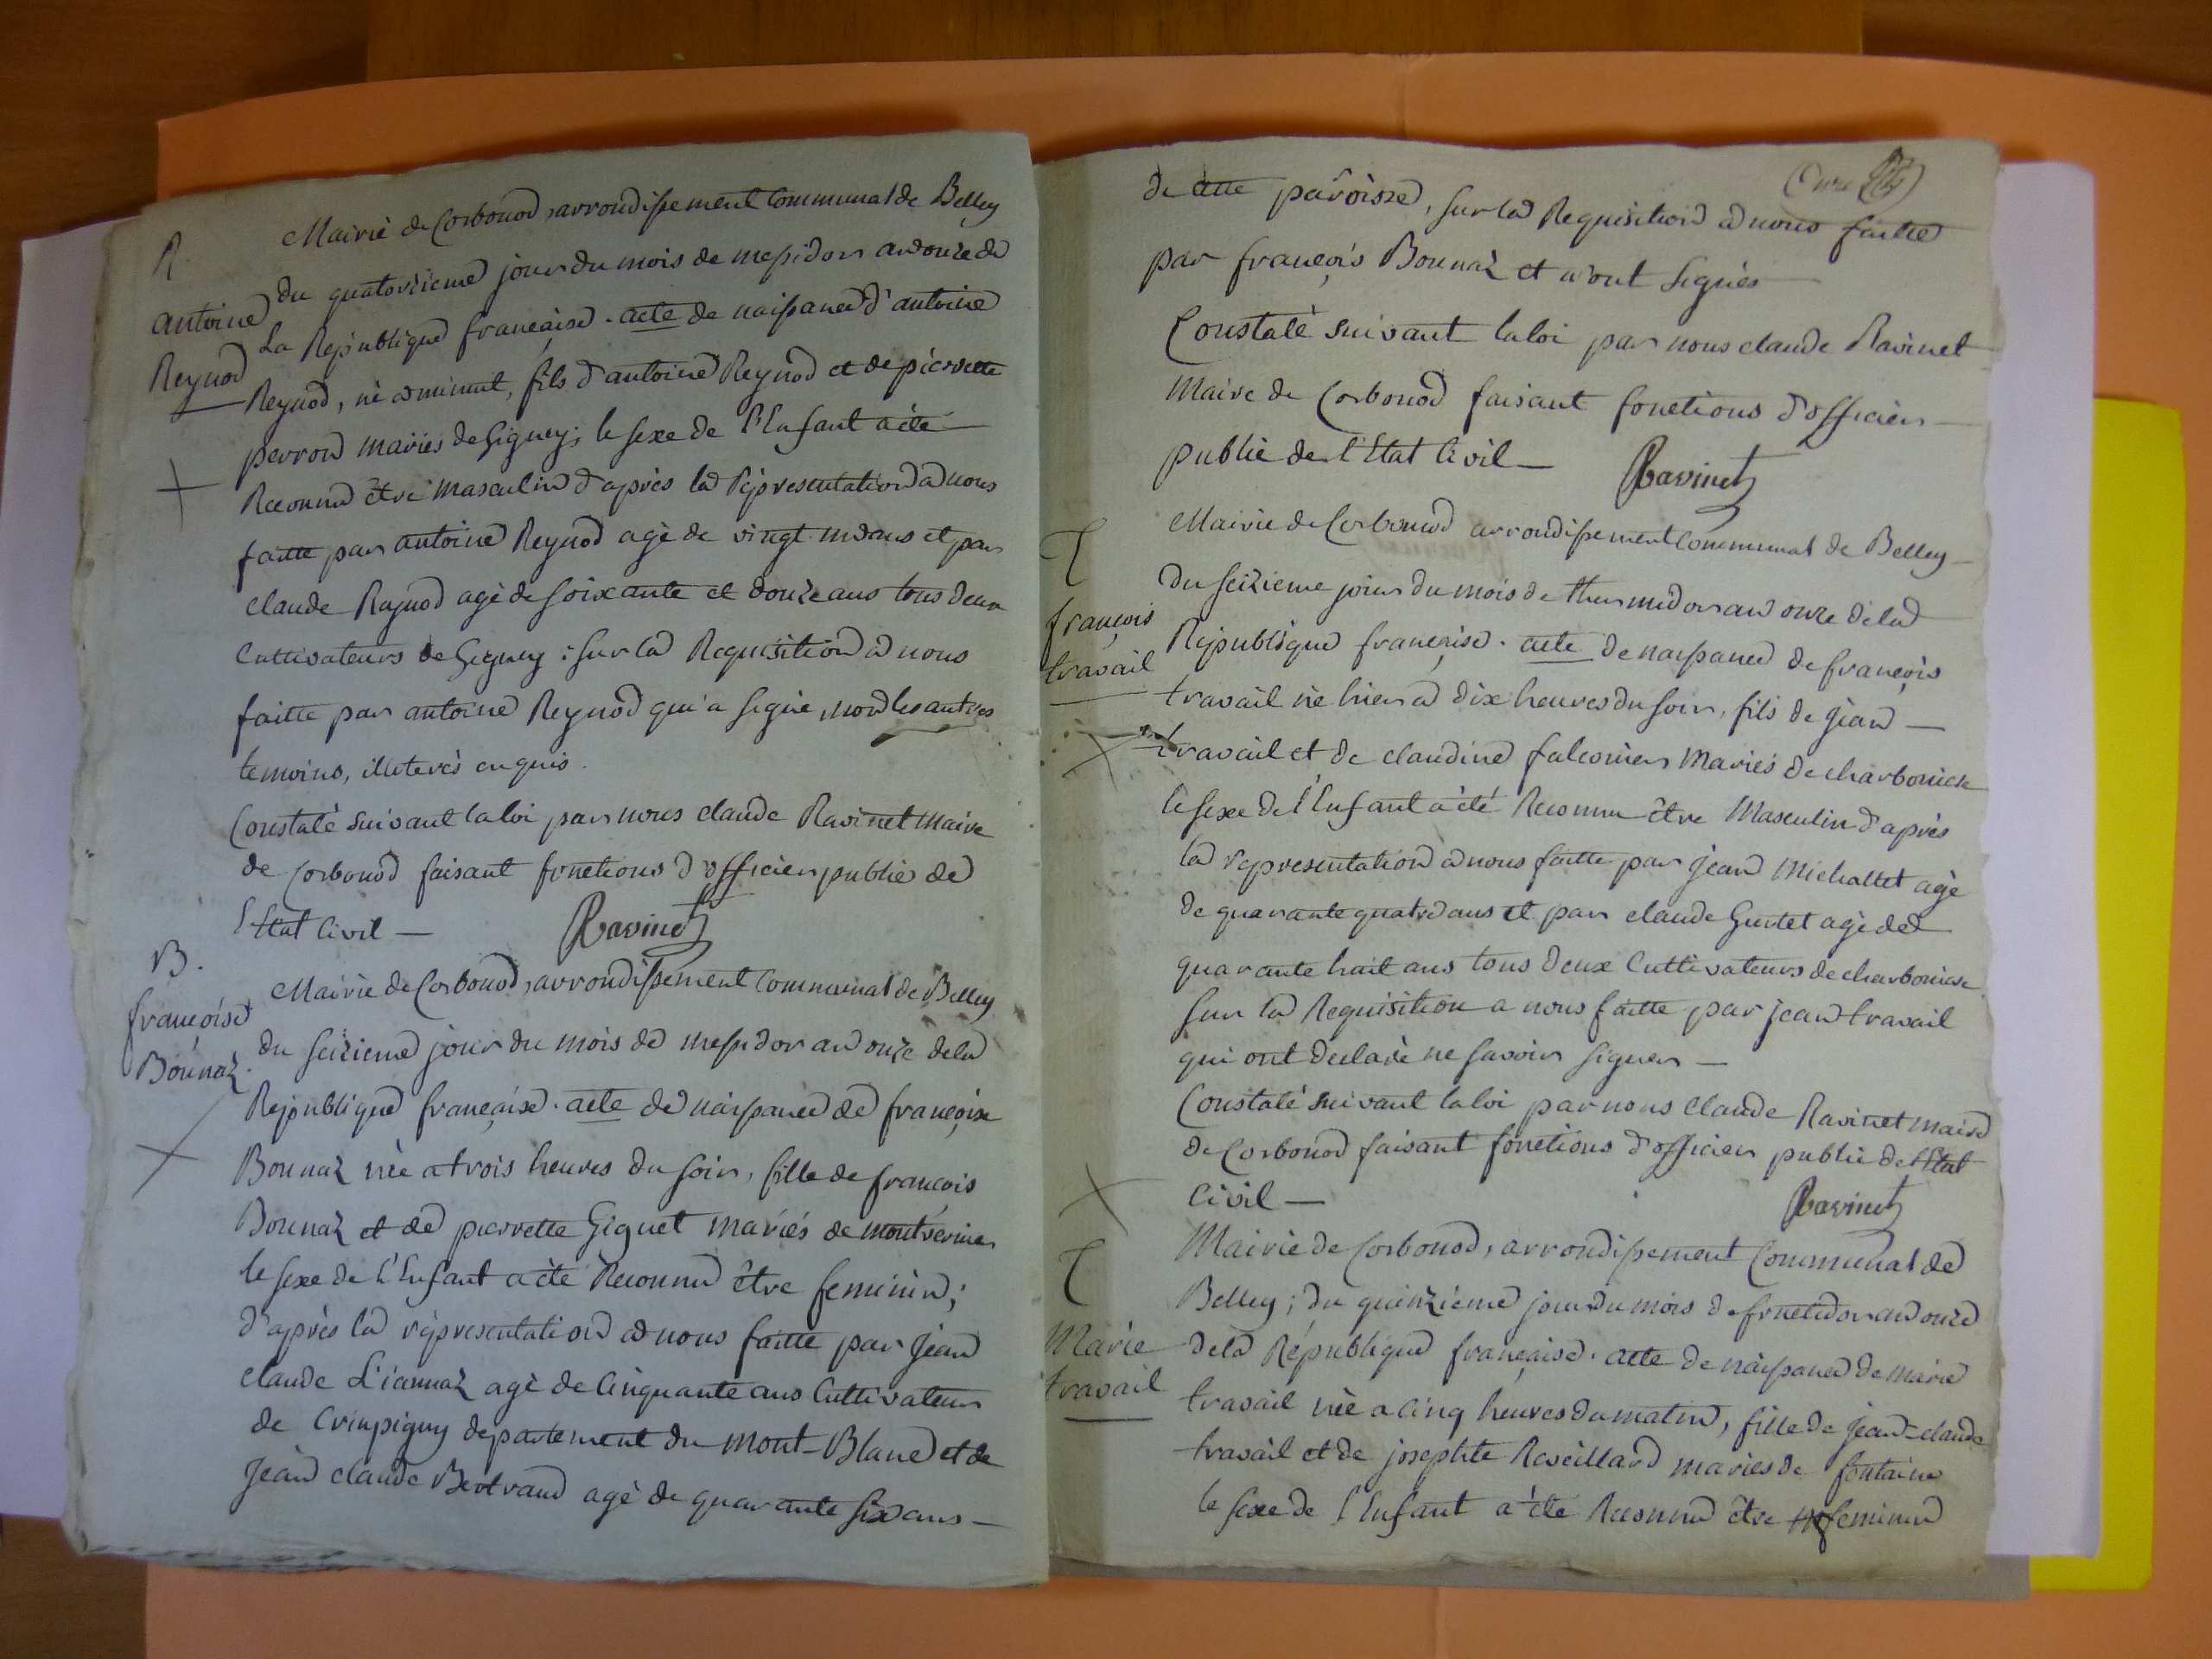 R.
antoine
Reynod
Mairie de Corbonod, arrondissement Communal de Belley
du quatorzieme jour du mois de messidor an onze de
La Republique française. acte de naissance d'antoine
Reynod, né a minuit, fils d'antoine Reynod et de pierrette
perron mariés de Gigney; le sexe de l'Enfant a été
Reconnu être masculin d'après la Représentation a nous
faitte par antoine Reynod agé de vingt ans et par
claude Reynod agé de soixante et douze ans tous deux
Cultivateurs de Gigney : sur la Requisition a nous
faitte par antoine Reynod qui a signé, non les autres
temoins, illeterés enquis.
Constaté suivant la loi par nous claude Ravinet Maire
de Corbonod faisant fonctions d'officier public de
l'Etat Civil —
Ravinet
B.
françoise
Bonnaz.
Mairie de Corbonod, arrondissement Communal de Belley
du seizieme jour du mois de messidor an onze de la
Republique française. acte de naissance de françoise
Bonnaz née a trois heures du soir, fille de françois
Bonnaz et de pierrette Giguet mariés de montvernier
le sexe de l'Enfant a été Reconnu être feminin;
d'après la représentation a nous faitte par jean
claude L'iannaz agé de Cinquante ans Cultivateur
de Crinpigny departement du Mont-Blanc et de
Jean claude Bertrand agé de quarante six ans —
de cette paroisse, sur la Requisition a nous faitte
par françois Bonnaz et n'ont signés
Constaté suivant la loi par nous claude Ravinet
Maire de Corbonod faisant fonctions d'officier
public de l'Etat Civil —
Ravinet
T
françois
travail
Mairie de Corbonod arrondissement Communal de Belley
du seizieme jour du mois de thermidor an onze de la
Republique française. acte de naissance de françois
travail né hier a dix heures du soir, fils de jean —
travail et de claudine falconier Mariés de charbonier
le sexe de l'Enfant a été Reconnu être Masculin d'après
la representation a nous faitte par jean Michallet agé
de quarante quatre ans et par claude Gurtet agé de
quarante huit ans tous deux Cultivateurs de charboniere
sur la Requisition a nous faitte par jean travail
qui ont declaré ne savoir signer —
Constaté suivant la loi par nous claude Ravinet maire
de Corbonod faisant fonctions d'officier public de l'Etat
Civil —
Ravinet
T
Marie
travail
Mairie de Corbonod, arrondissement Communal de
Belley; du quinzieme jour du mois de fructidor an onze
de la République française. acte de naissance de marie
travail née a cinq heures du matin, fille de jean-claude
travail et de josephte Reveillard mariés de fontaine
le sexe de l'Enfant a été Reconnu être feminin